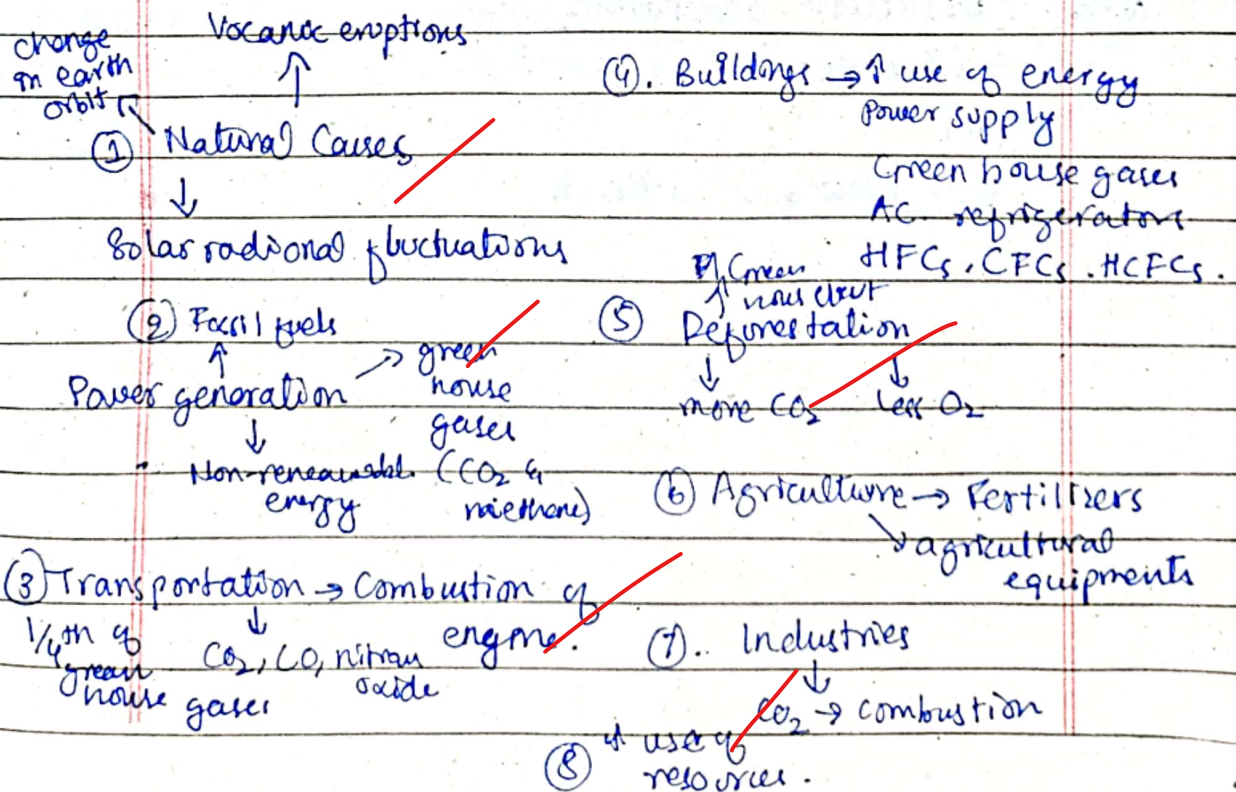 change
in earth
orbit
Vocanoc eruptions
↑
① Natural Causes
↓
Solar radional fluctuations
② Fossil fuels
↑
Power generation → green
house
gases
(CO2 &
methane)
↓
Non-renewable
energy
③ Transportation → Combustion of
engine.
↓
1/4th of
green
house gases
CO2, CO, nitrous
oxide
④. Buildings → ↑ use of energy
Power supply
Green house gases
AC refrigerators
HFCs, CFCs, HCFCs.
Green
↑
⑤ Deforestation
↓ ↓
more CO2 less O2
⑥ Agriculture → Fertilizers
↘ agricultural
equipments
⑦. Industries
↓
CO2 → combustion
⑧ use of
resources.